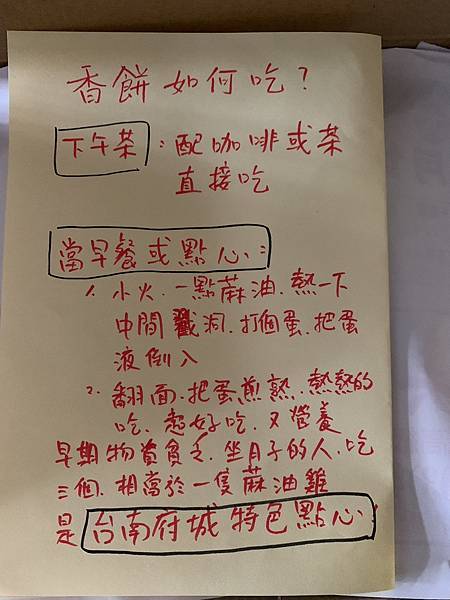 香餅如何吃？
下午茶：配咖啡或茶
直接吃
當早餐或點心：
1. 小火.一點蔴油.熱一下
中間戳洞.打個蛋.把蛋
液倒入
2. 翻面.把蛋煎熟.熱熱的
吃.超好吃.又營養
早期物資貧乏.坐月子的人.吃
三個.相當於一隻蔴油雞
是台南府城特色點心！